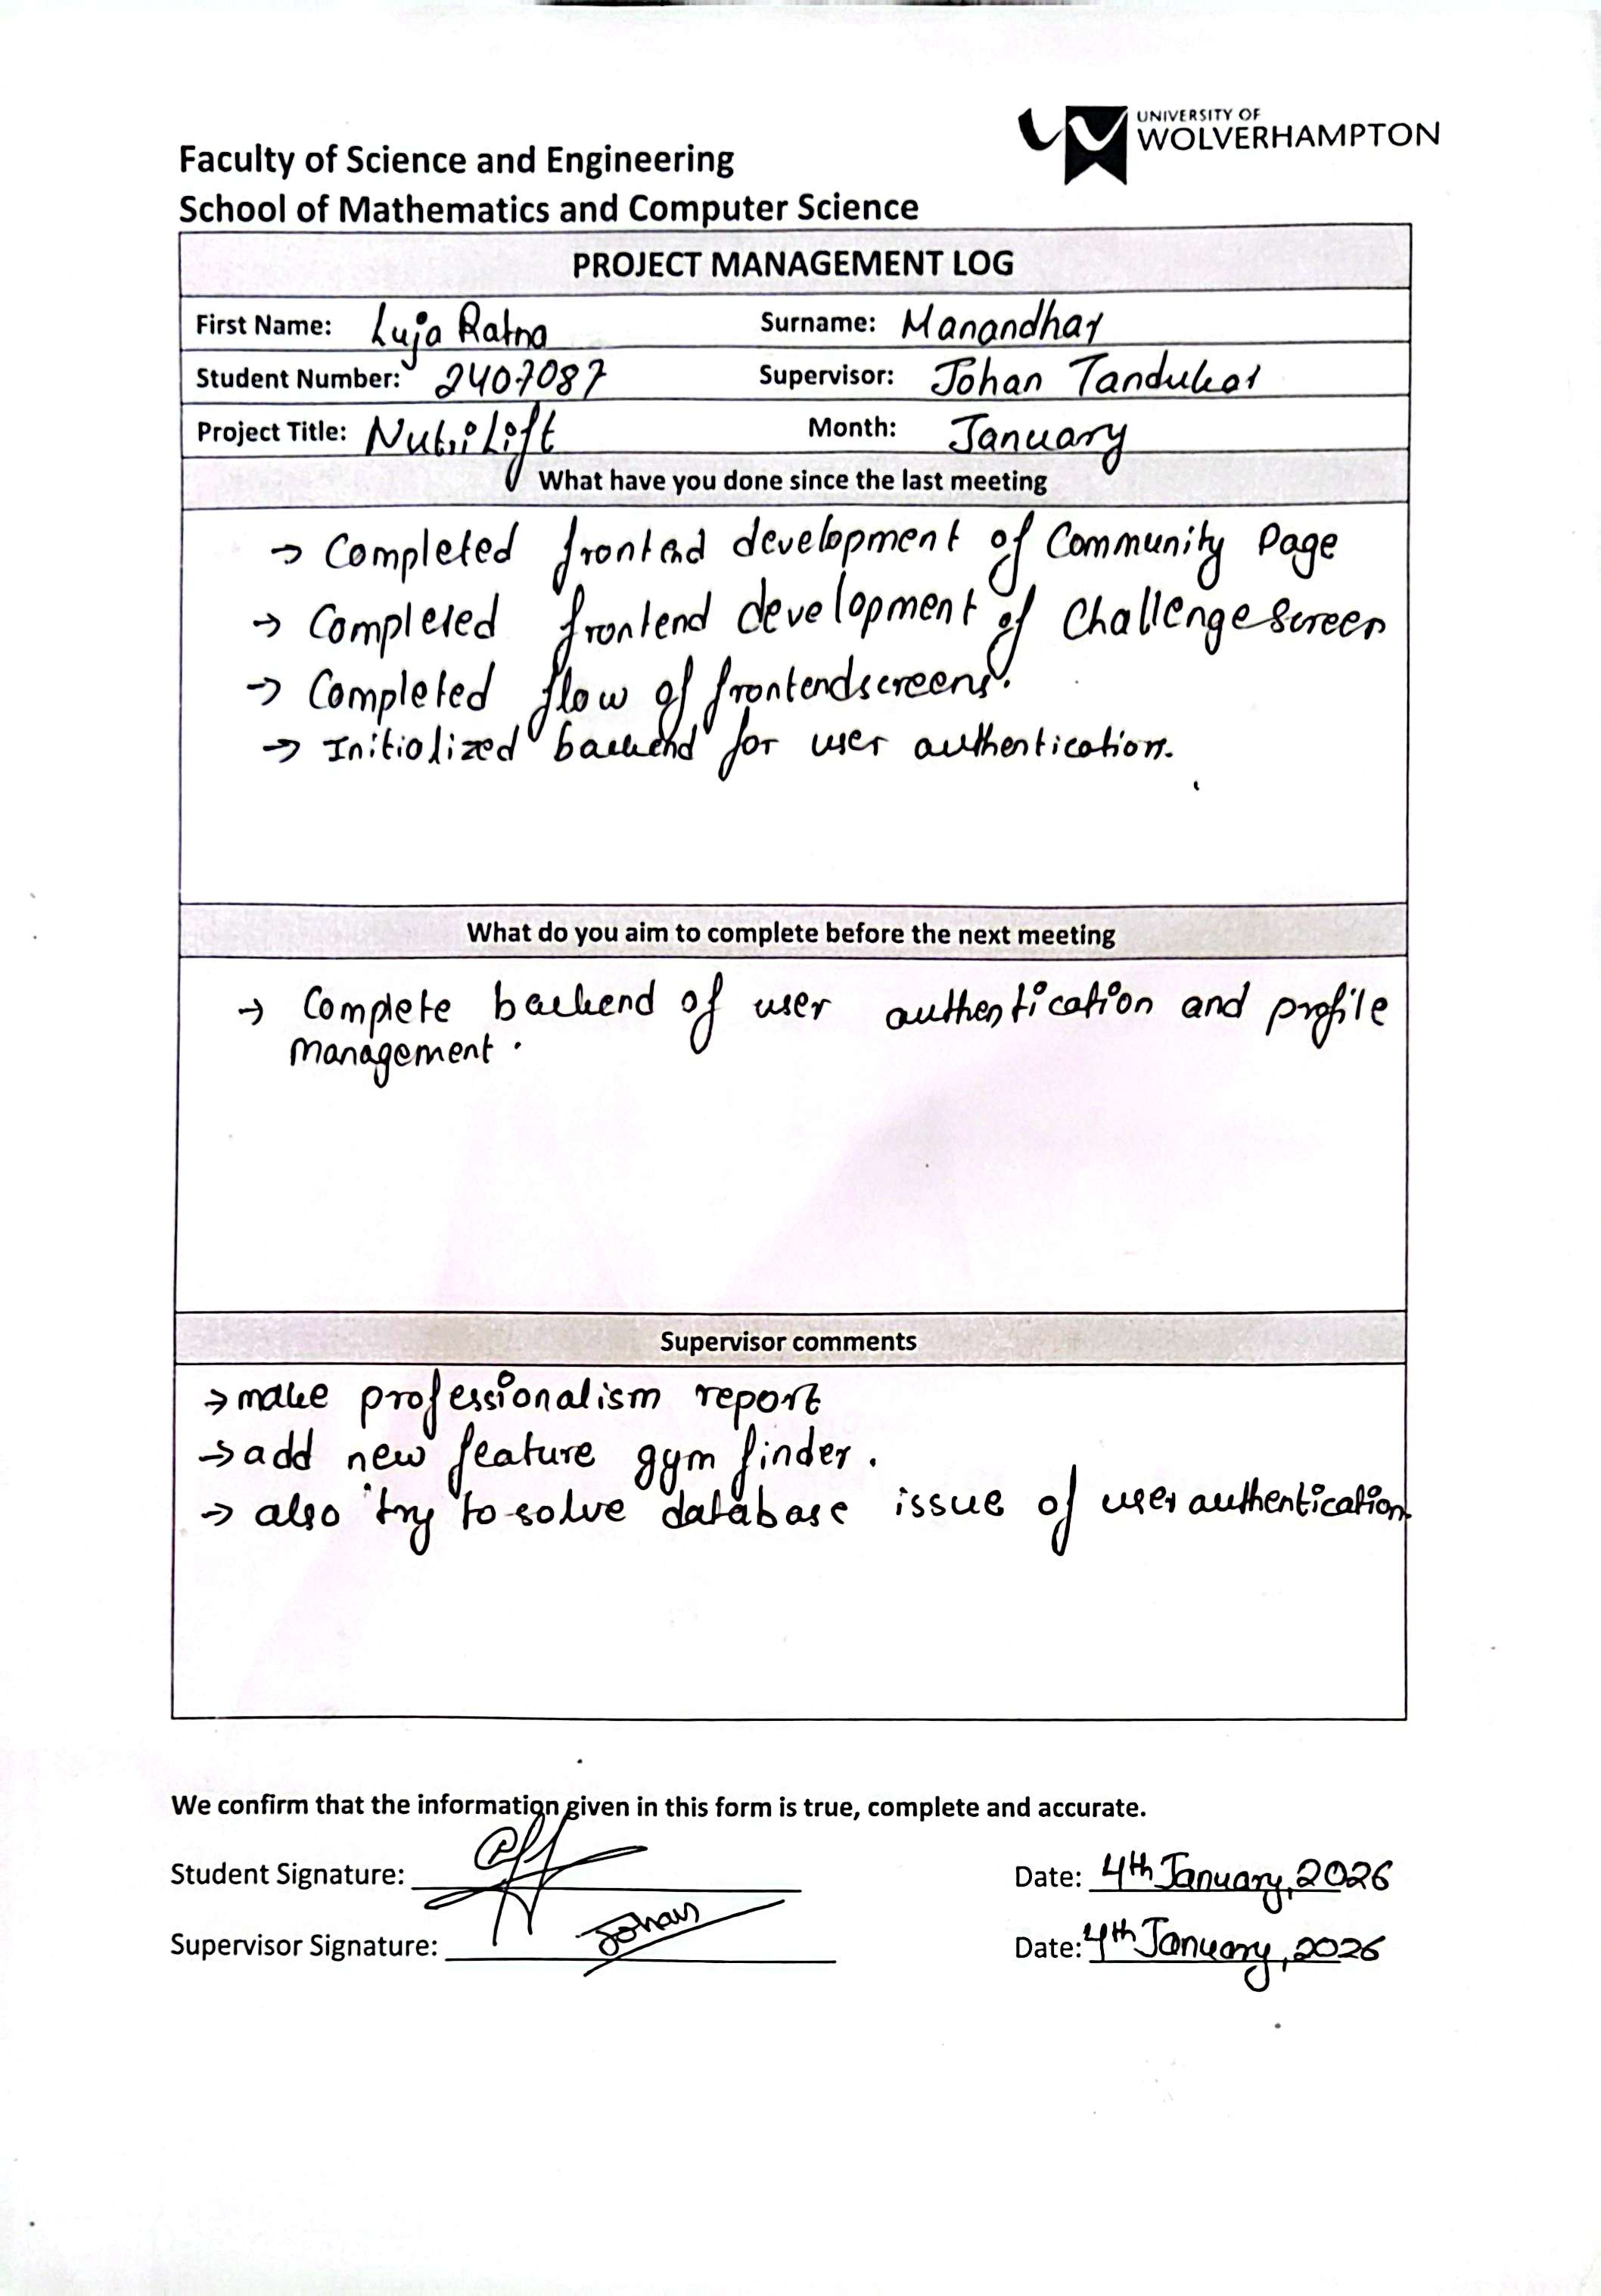 UNIVERSITY OF
WOLVERHAMPTON
Faculty of Science and Engineering
School of Mathematics and Computer Science
PROJECT MANAGEMENT LOG
First Name: Luja Ratna Surname: Manandhar
Student Number: 2407087 Supervisor: Johan Tandukar
Project Title: NutriLift Month: January
What have you done since the last meeting
→ Completed frontend development of Community Page
→ Completed frontend development of Challenge Screen
→ Completed flow of frontendscreens.
→ Initialized backend for user authentication.
What do you aim to complete before the next meeting
→ Complete backend of user authentication and profile
management.
Supervisor comments
→ make professionalism report
→ add new feature gym finder.
→ also try to solve database issue of user authentication.
We confirm that the information given in this form is true, complete and accurate.
Student Signature: Date: 4th January, 2026
Supervisor Signature: Johan Date: 4th January, 2026